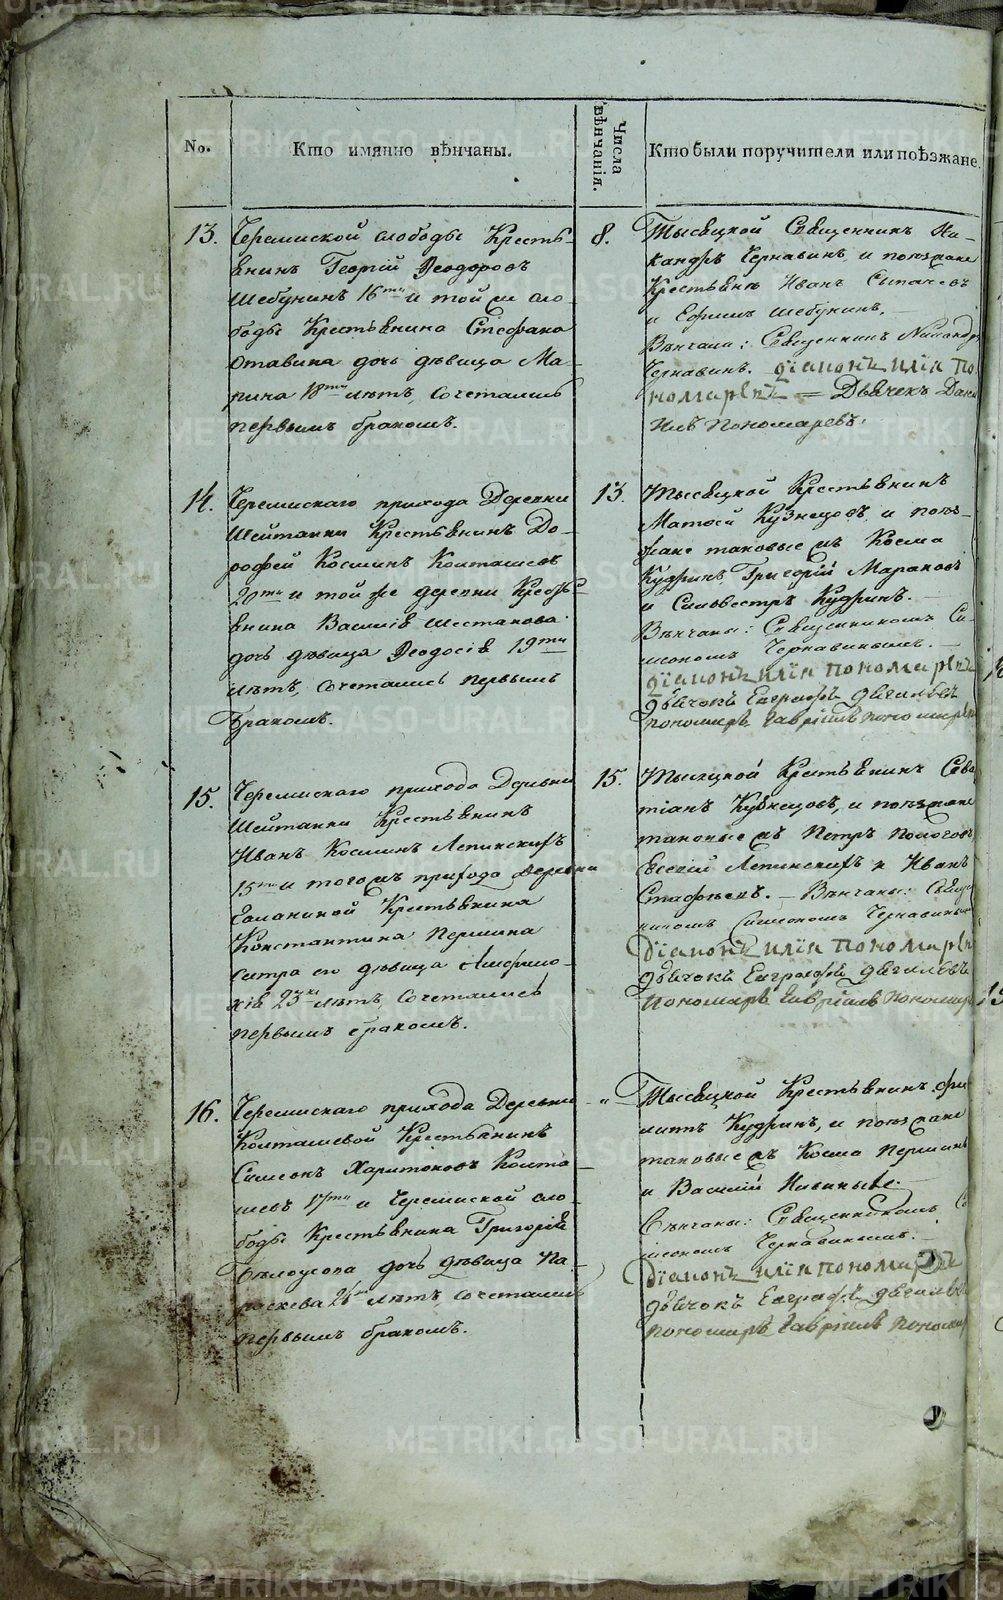 No.
Кто имянно вѣнчаны.
Числа вѣнчанія.
Кто были поручители или поѣзжане.
13.
Черемиской слободы Кресть-
янинъ Георгій Ѳеодоровъ
Шебунинъ 16ти и той же сло-
боды Крестьянина Стефана
Отавина дочь дѣвица Ма-
рина 18ти лѣтъ, сочетались
первымъ бракомъ.
8.
Тысяцкой Священникъ Ни-
кандръ Чернавинъ, и поѣзжане
Крестьяне Иванъ
и Ефимъ Шебунинъ,
Вѣнчали: Священникъ Никандръ
Чернавинъ. діаконъ илія По
номаревъ = Дьячекъ Дани
илъ Пономаревъ.
14.
Черемискаго прихода Деревни
Шейтанки Крестьянинъ До-
рофей Косминъ Колташевъ
20ти и той же деревни Кресть
янина Василія Шестакова
дочь дѣвица Ѳеодосія 19ти
лѣтъ, сочетались первымъ
бракомъ.
13.
Тысяцкой Крестьянинъ
Матѳей Кузнецовъ и поѣз-
жане таковые жъ Косма
Кудринъ, Григорій
и Сильвестръ Кудринъ.
Вѣнчаны: Священникомъ Си-
меономъ Чернавинымъ.
діаконъ илія пономаревъ
дьячокъ Евграфъ
пономарь Гавріилъ пономаревъ
15.
Черемискаго прихода Деревни
Шейтанки Крестьянинъ
Иванъ Косминъ Лепинскихъ
15ти и того жъ прихода деревни
Крестьянина
Константина Першина
сестра его дѣвица
23хъ лѣтъ, сочетались
первымъ бракомъ.
15.
Тысяцкой Крестьянинъ Сева
тіанъ Кузнецовъ, и поѣзжане
таковые жъ Петръ
Лепинскихъ и Иванъ
Вѣнчаны: Священ
никомъ Симеономъ Чернавинымъ
Діаконъ илія пономаревъ
дьячокъ Евграфъ
пономарь Гавріилъ пономар
16.
Черемискаго прихода Деревни
Колташевой Крестьянинъ
Симеонъ Харитоновъ Колта-
шевъ 17ти и Черемиской сло-
боды Крестьянина Григорія
Бѣлоусова дочь дѣвица Па-
раскева лѣтъ, сочетались
первымъ бракомъ.
"
Тысяцкой Крестьянинъ Фи
липъ Кудринъ, и поѣзжане
таковые жъ Косма Першинъ
и Василій
Вѣнчаны: Священникомъ Си
меономъ Чернавинымъ.
Діаконъ илія пономаревъ
дьячокъ Евграфъ
пономарь Гавріилъ поном
METRIKI.GASO-URAL.RU